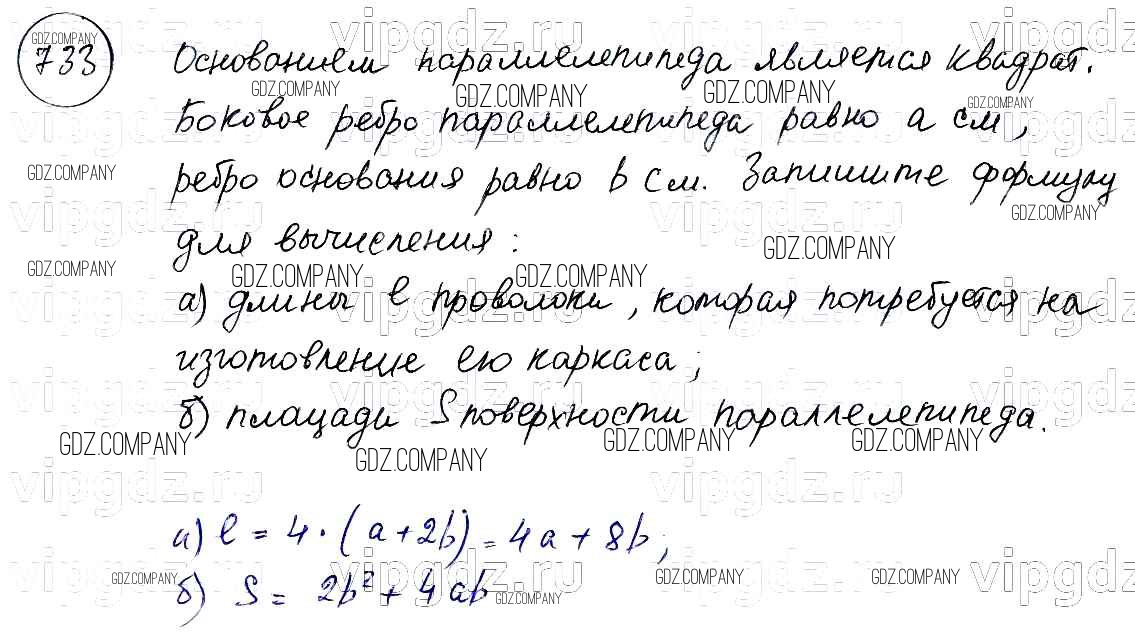 733
Основанием параллелепипеда является квадрат.
Боковое ребро параллелепипеда равно a см,
ребро основания равно b см. Запишите формулу
для вычисления:
а) длины ℓ проволоки, которая потребуется на
изготовление его каркаса;
б) площади S поверхности параллелепипеда.
а) ℓ = 4 · (a + 2b) = 4a + 8b;
б) S = 2b² + 4ab